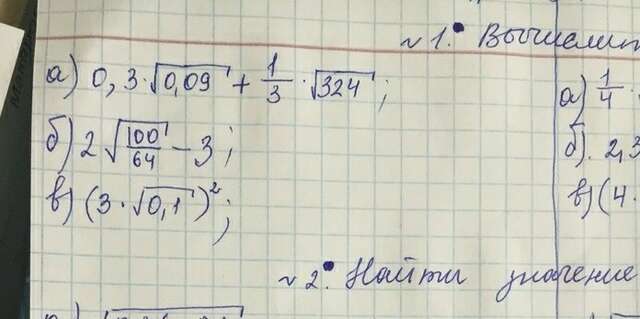 № 1. Вычислит
а) 0,3·√0,09 + 1/3 ·√324;
б) 2√100/64 - 3;
в) (3·√0,1)²;
а) 1/4 ·
б). 2,3
в) (4·
№ 2. Найти значение